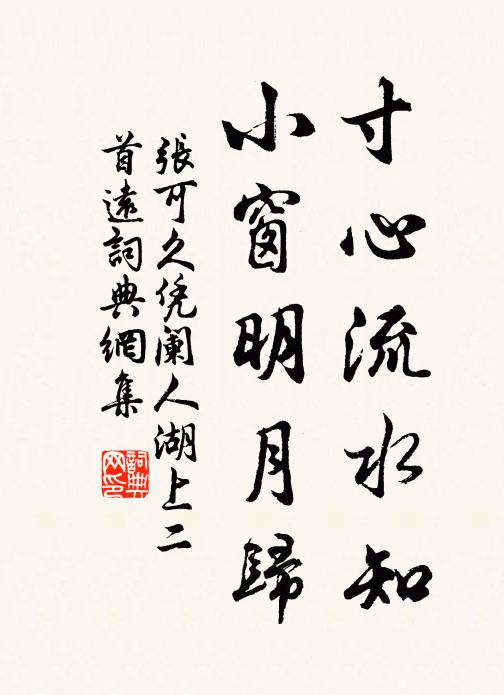 寸心流水知
小窗明月歸
張可久凭闌人湖上二
首遠詞典網集
詞典
网印